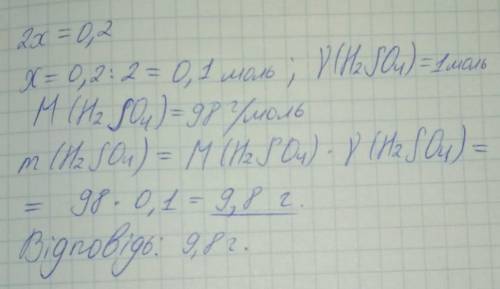 2x = 0,2
x = 0,2 : 2 = 0,1 моль ; γ(H₂SO₄) = 1 моль
M (H₂SO₄) = 98 г/моль
m (H₂SO₄) = M (H₂SO₄) · γ (H₂SO₄) =
= 98 · 0,1 = 9,8 г.
Відповідь: 9,8 г.